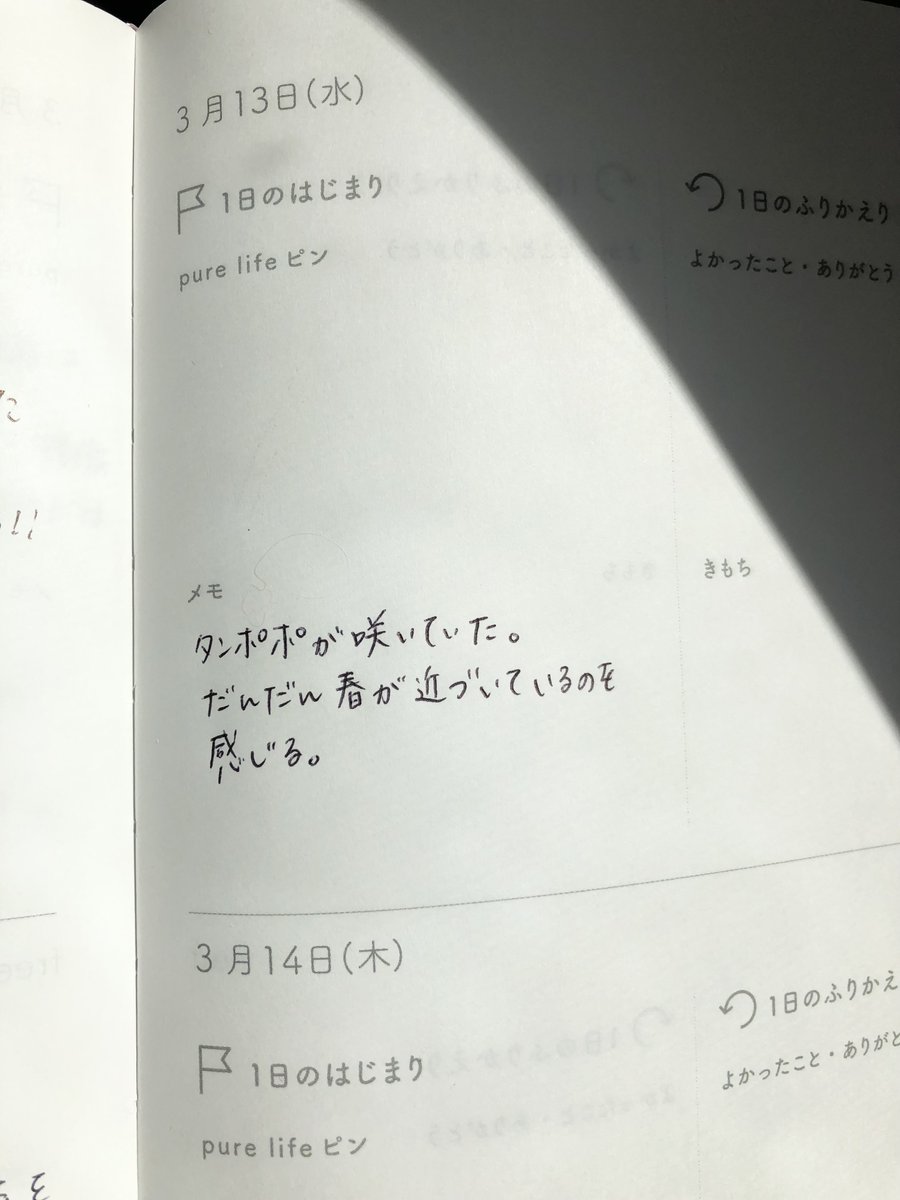 3月13日(水)
1日のはじまり
pure life ピン
1日のふりかえり
よかったこと・ありがとう
メモ
タンポポが咲いていた。
だんだん春が近づいているのを
感じる。
きもち
3月14日(木)
1日のはじまり
pure life ピン
1日のふりかえ
よかったこと・ありがと